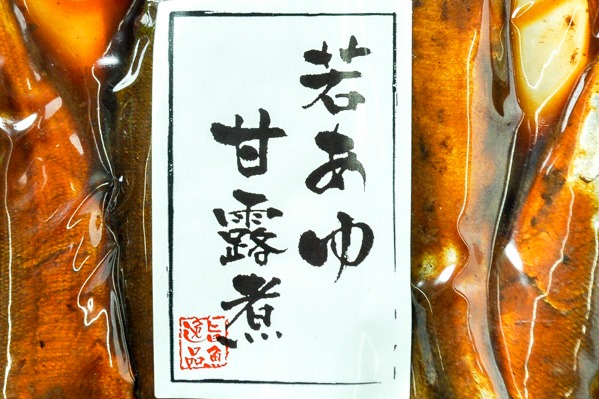 若あゆ
甘露煮
旨魚
逸品